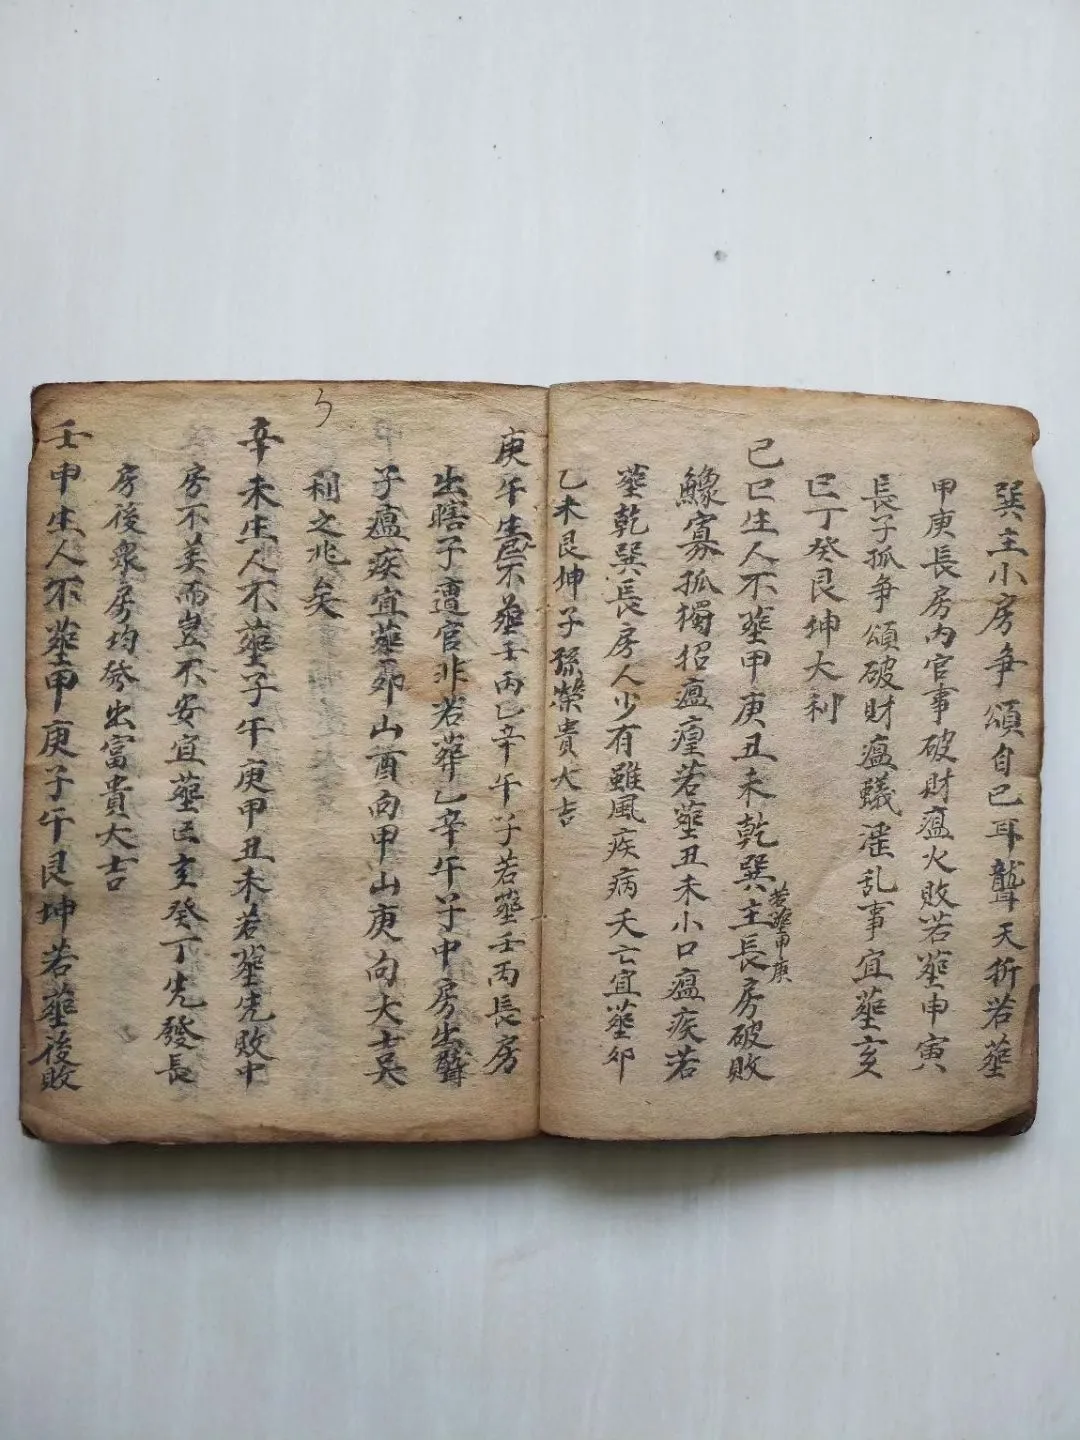 巽主小房争頌自己耳聾夭折若塟
甲庚長房内官事破財瘟火敗若塟申寅
長子孤争頌破財瘟蟻滛乱事宜塟亥
巳丁癸艮坤大利
己巳生人不塟甲庚丑未乾巽主長房破敗
若塟甲庚
鰥寡孤獨招瘟瘟若塟丑未小口瘟疾若
塟乾巽長房人少有雖風疾病夭亡宜塟卯
乙未艮坤子孫榮貴大吉
庚午生人不塟壬丙乙辛午子若塟壬丙長房
出瞎子遭官非若葬乙辛午子中房出聾
子瘟疾宜塟卯山酉向甲山庚向大吉吴
利之兆矣
辛未生人不塟子午庚甲丑未若塟先敗中
房不美而豈不安宜塟巳亥癸丁先發長
房後衆房均發出富貴大吉
壬申生人不塟甲庚子午艮坤若塟後敗